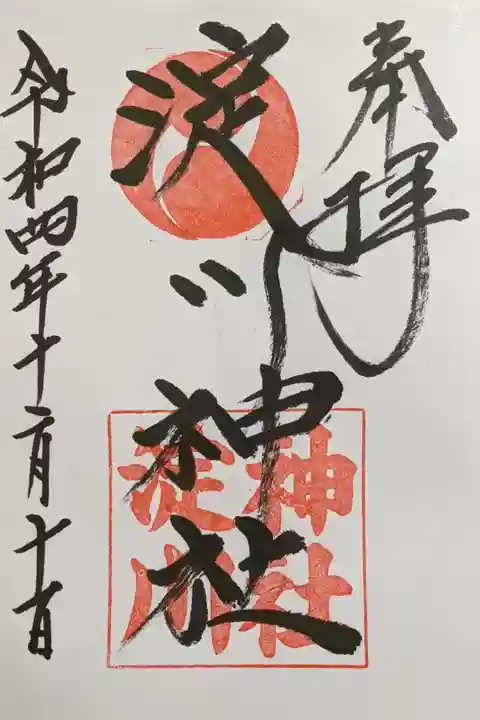 奉拝
淀川神社
令和四年十二月十一日
淀川
神社